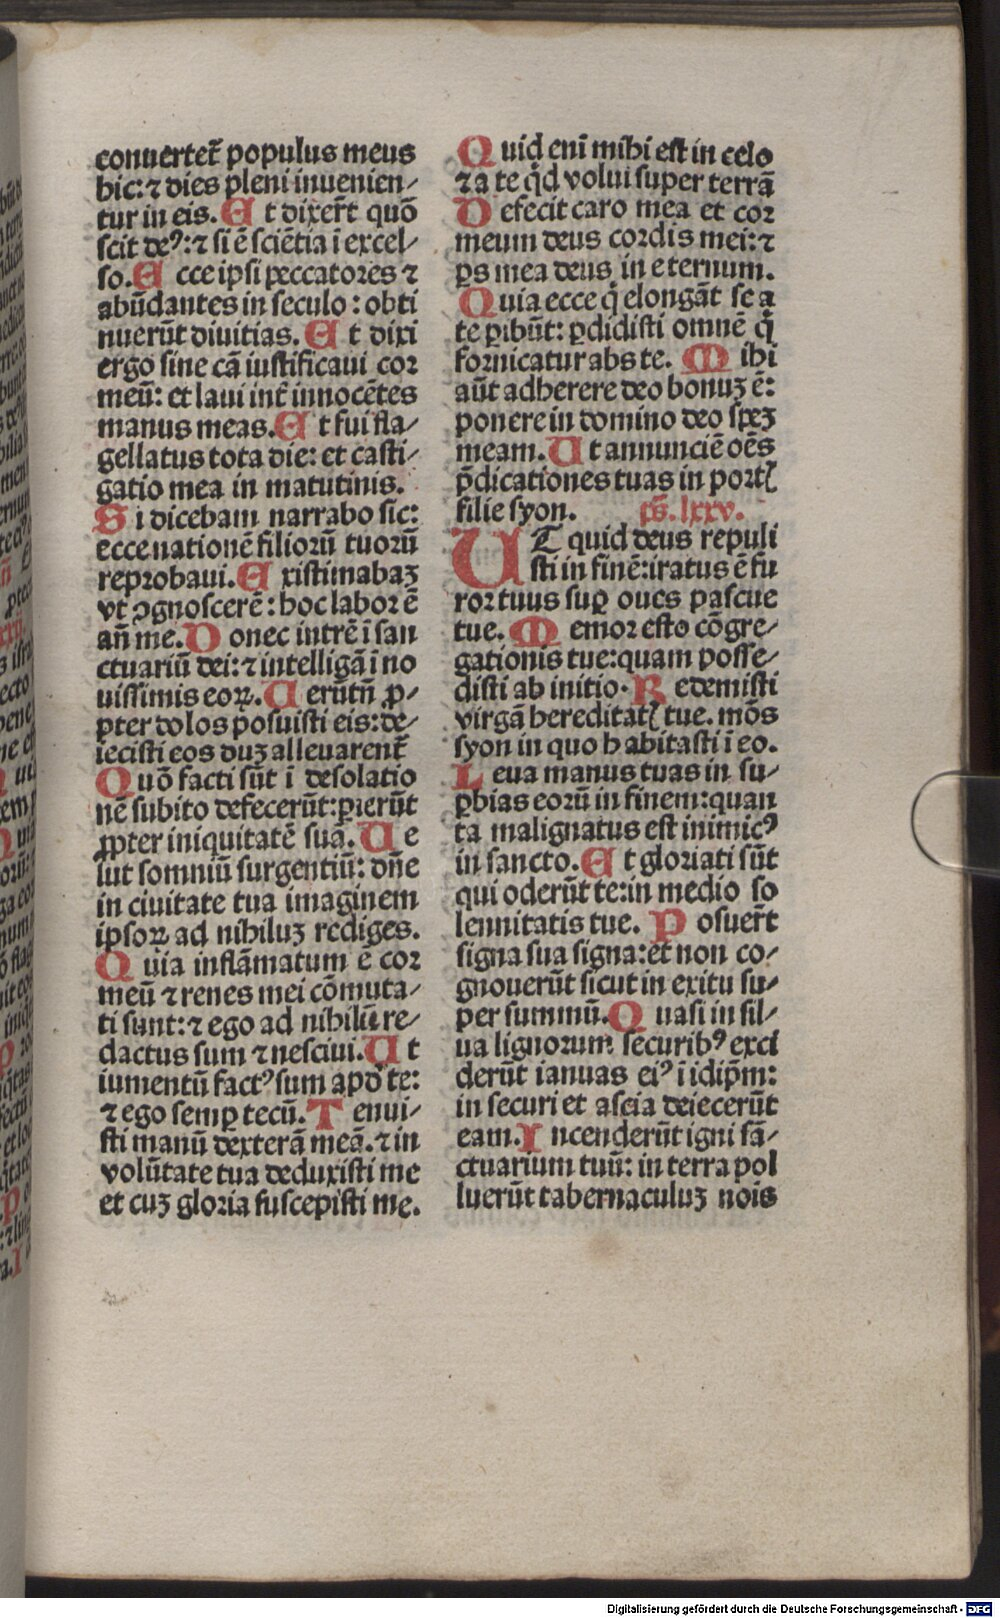 conuertet̃ populus meus
hic: ⁊ dies pleni inuenien⸗
tur in eis. Et dixer̃t quō
scit deꝰ: ⁊ si ē sciētia ī excel⸗
so. Ecce ipsi peccatores ⁊
abūdantes in seculo: obti
nuerūt diuitias. Et dixi
ergo sine cā iustificaui cor
meū: et laui int̃ innocētes
manus meas. Et fui fla⸗
gellatus tota die: et casti⸗
gatio mea in matutinis.
Si dicebam narrabo sic:
ecce nationē filiorū tuorū
reprobaui. Existimabaꝫ
vt ꝯgnoscerē: hoc labor ē
añ me. Donec intrē ī san
ctuariū dei: ⁊ intelligā ī no
uissimis eoꝝ. Uerūtñ ꝓ⸗
pter dolos posuisti eis: de⸗
iecisti eos duꝫ alleuarent̃
Quō facti sūt ī desolatio
nē subito defecerūt: ꝑierūt
ꝓpter iniquitatē suā. Ue
lut somniū surgentiū: dñe
in ciuitate tua imaginem
ipsoꝝ ad nihiluꝫ rediges.
Quia inflāmatum e cor
meū ⁊ renes mei cōmuta⸗
ti sunt: ⁊ ego ad nihilū re⸗
dactus sum ⁊ nesciui. Ut
iumentū factꝰ sum apđ te:
⁊ ego semꝑ tecū. Tenui⸗
sti manū dexterā meā. ⁊ in
volūtate tua deduxisti me
et cuꝫ gloria suscepisti me.
Quid enī mihi est in celo
⁊ a te qͥd volui super terrā
Defecit caro mea et cor
meum deus cordis mei: ⁊
ꝑs mea deus in eternum.
Quia ecce qͥ elongāt se a
te ꝑibūt: ꝑdidisti omnē qͥ
fornicatur abs te. Mihi
aūt adherere deo bonuꝫ ē:
ponere in domino deo speꝫ
meam. Ut annunciē oēs
p̄dicationes tuas in portꝭ
filie syon. ps̄. lxxv.
UT quid deus repuli
sti in finē: iratus ē fu
ror tuus suꝑ oues pascue
tue. Memor esto cōgre⸗
gationis tue: quam posse⸗
disti ab initio. Redemisti
virgā hereditatꝭ tue. mōs
syon in quo habitasti ī eo.
Leua manus tuas in su⸗
ꝑbias eorū in finem: quan
ta malignatus est inimicꝰ
in sancto. Et gloriati sūt
qui oderūt te: in medio so
lennitatis tue. Posuer̃t
signa sua signa: et non co⸗
gnouerūt sicut in exitu su⸗
per summū. Quasi in sil⸗
ua lignorum securibꝰ exci
derūt ianuas eiꝰ ī idip̄m:
in securi et ascia deiecerūt
eam. Incenderūt igni sā⸗
ctuarium tuū: in terra pol
luerūt tabernaculuꝫ nois
Digitalisierung gefördert durch die Deutsche Forschungsgemeinschaft - DFG